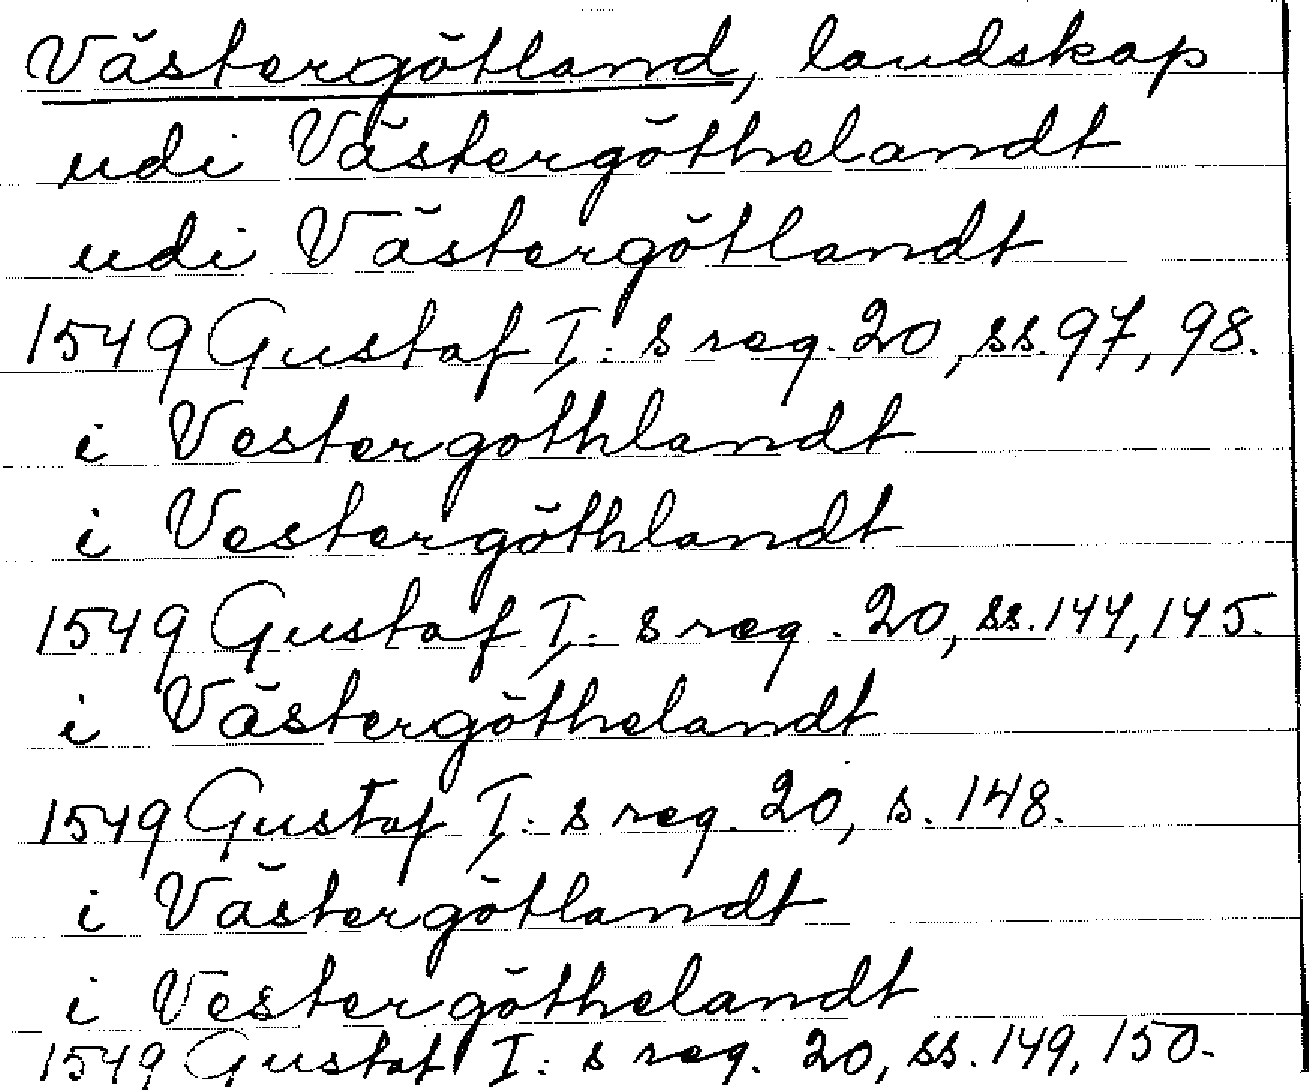 Västergötland, landskap
udi Västergöthelandt
udi Västergötlandt
1549 Gustaf I: s reg. 20, ss. 97, 98.
i Vestergothlandt
i Vestergöthlandt
1549 Gustaf I: s reg. 20, ss. 144, 145.
i Västergöthelandt
1549 Gustaf I: s reg. 20, s. 148.
i Västergötlandt
i Vestergöthelandt
1549 Gustaf I: s reg. 20, ss. 149, 150.